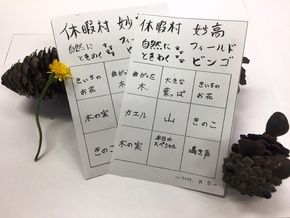 休暇村 妙
自然に
ときめく
きいろの
お花
曲がった
木
木の実
きのこ
休暇村 妙高
自然に フィールド
ときめく ビンゴ
曲がった
木
大きな
葉っぱ
きいろの
お花
カエル
山
きのこ
木の実
本日の
スペシャル
鳴き声